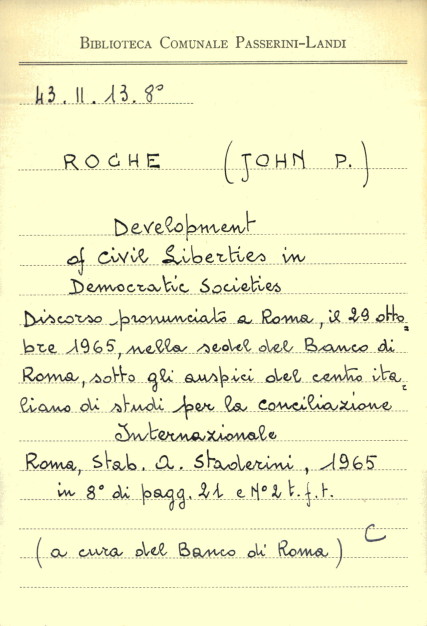 BIBLIOTECA COMUNALE PASSERINI-LANDI
43. II. 13. 8°
ROCHE (JOHN P.)
Development
of Civil Liberties in
Democratic Societies
Discorso pronunciato a Roma, il 29 otto=
bre 1965, nella sedel del Banco di
Roma, sotto gli auspici del centro ita=
liano di studi per la conciliazione
Internazionale
Roma, Stab. A. Staderini, 1965
in 8° di pagg. 21 e N° 2 t. f. t.
C
(a cura del Banco di Roma)